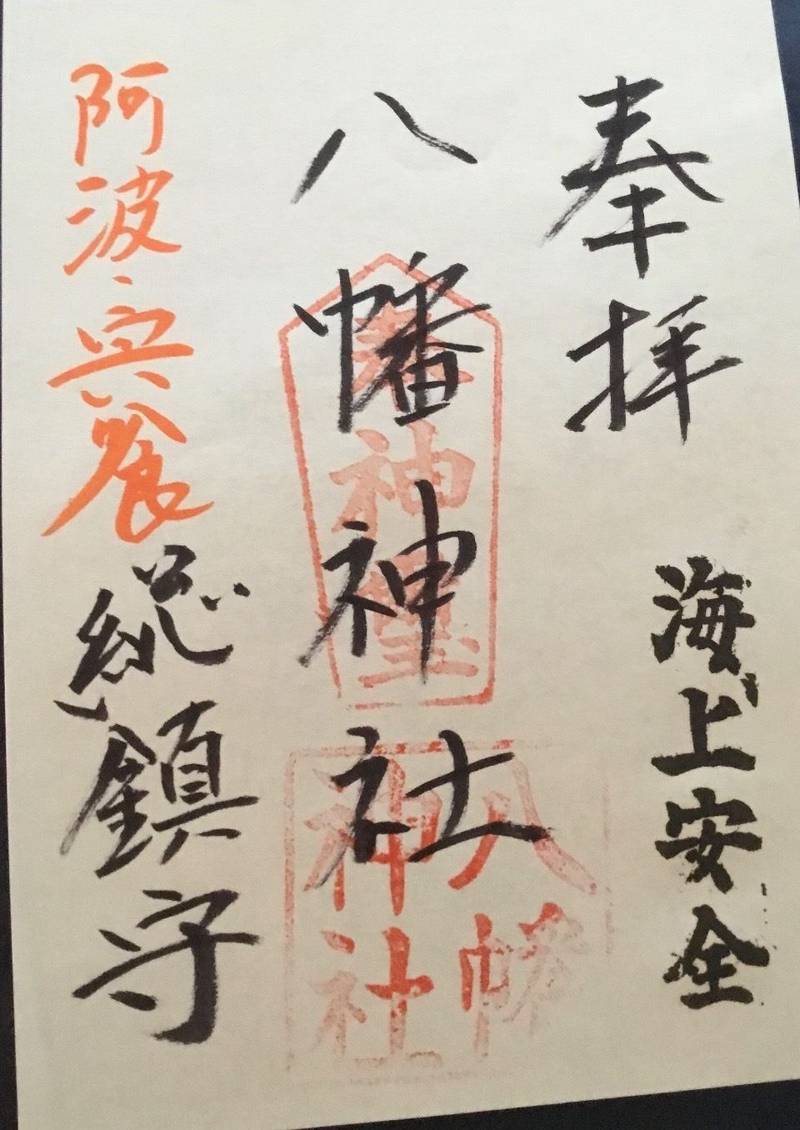 奉拝
海上安全
八幡神社
神璽
八幡
神社
阿波宍喰
総鎮守